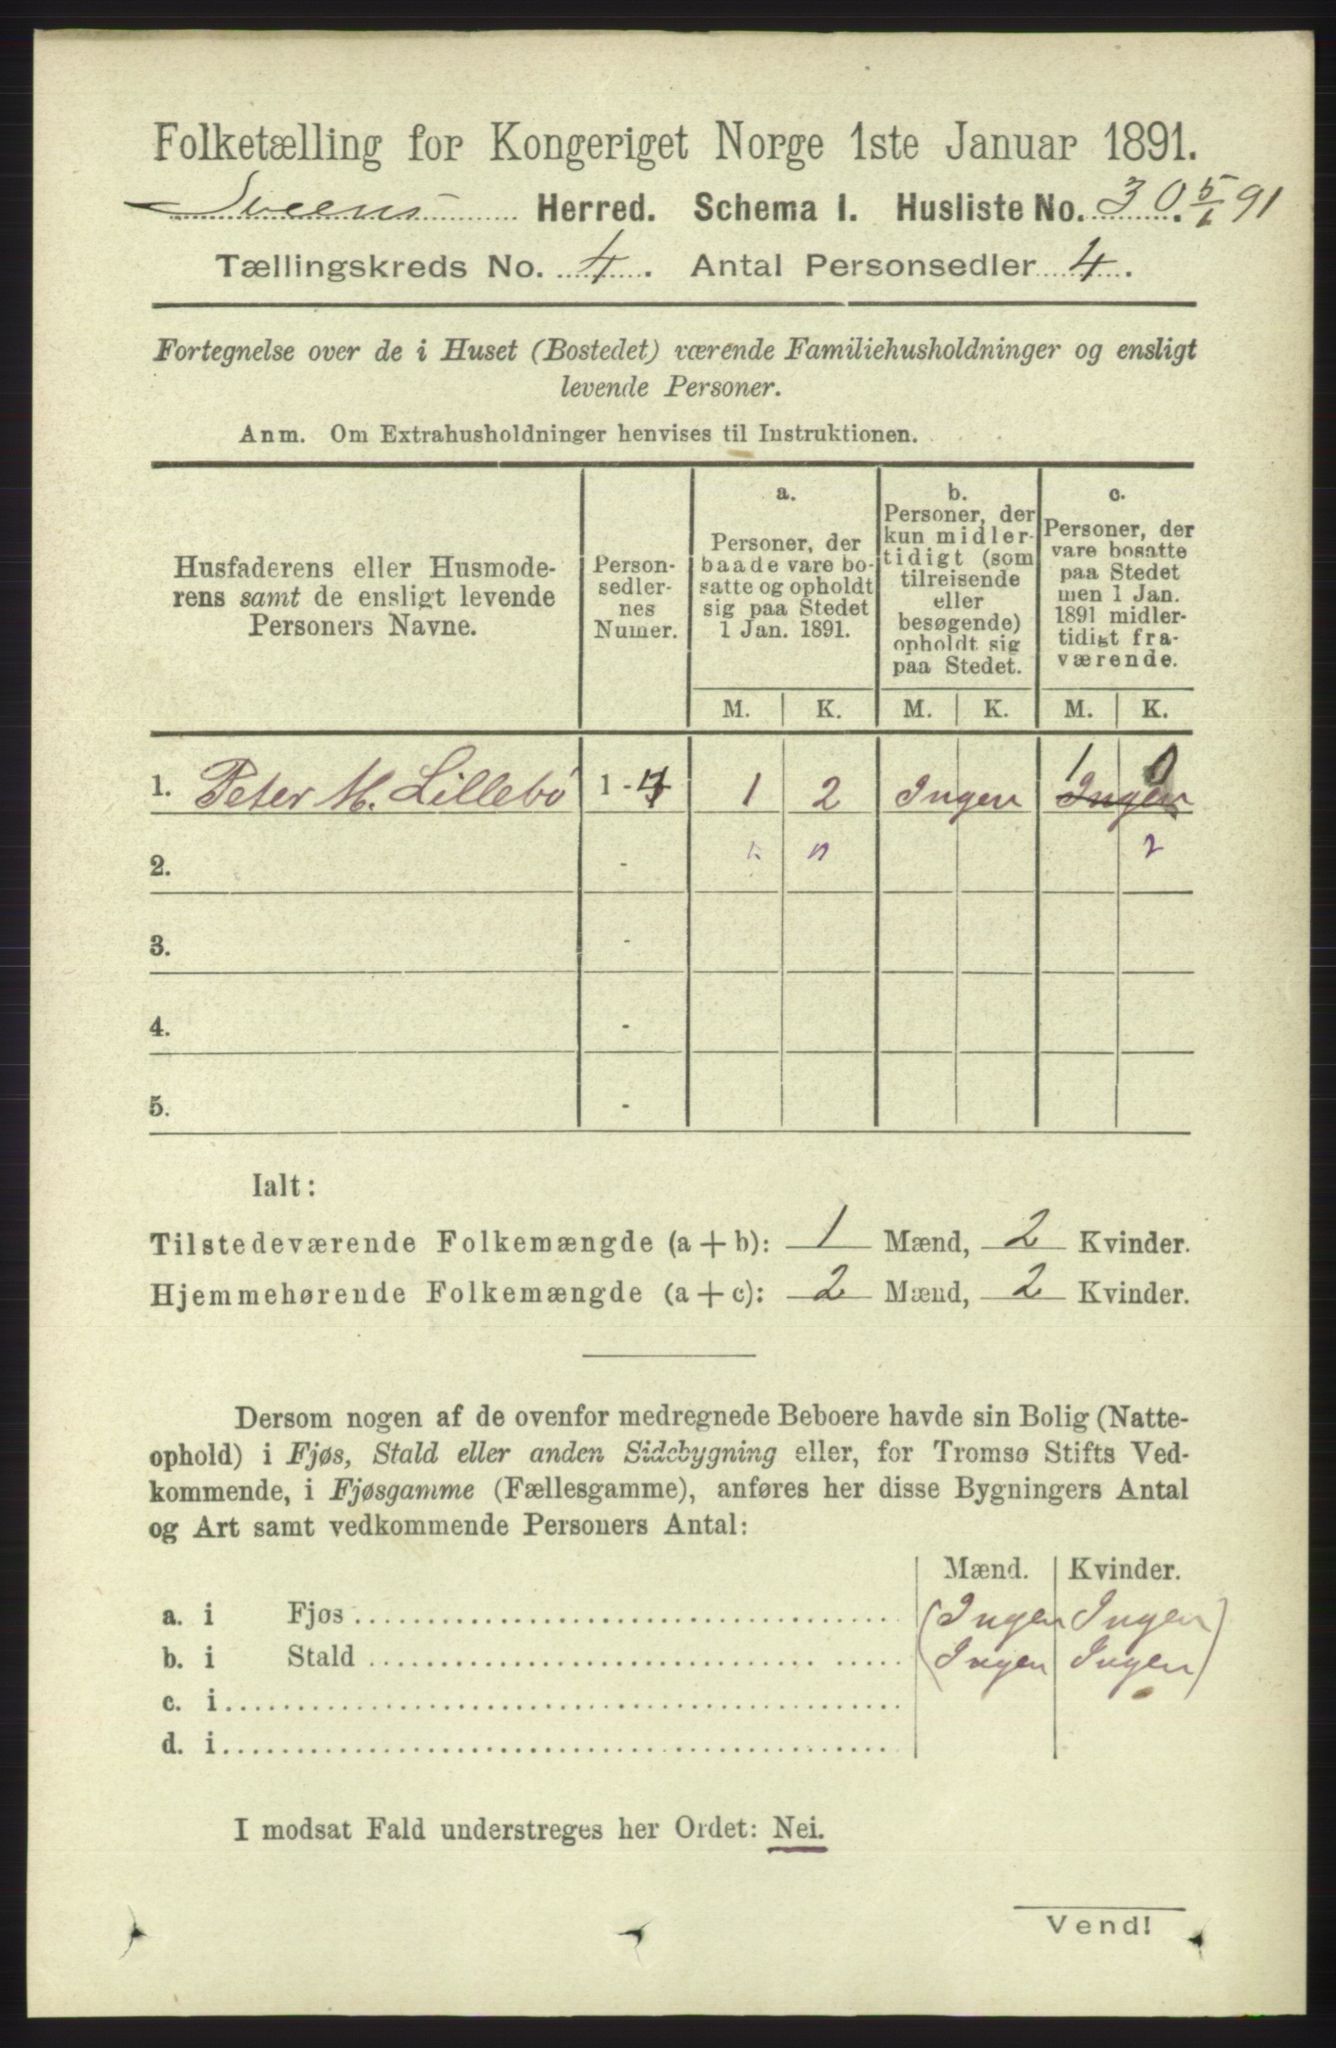 Folketælling for Kongeriget Norge 1ste Januar 1891.
Sveens Herred. Schema I. Husliste No. 30. 5/1 91
Tællingskreds No. 4. Antal Personsedler 4.
Fortegnelse over de i Huset (Bostedet) værende Familiehusholdninger og ensligt
levende Personer.
Anm. Om Extrahusholdninger henvises til Instruktionen.
Husfaderens eller Husmode-
rens samt de ensligt levende
Personers Navne.
Person-
sedler-
nes
Numer.
a.
Personer, der
baade vare bo-
satte og opholdt
sig paa Stedet
1 Jan. 1891.
b.
Personer, der
kun midler-
tidigt (som
tilreisende
eller
besøgende)
opholdt sig
paa Stedet.
c.
Personer, der
vare bosatte
paa Stedet
men 1 Jan.
1891 midler-
tidigt fra-
værende.
M. K. M. K. M. K.
1 0
1. Peter M. Lillebö 1 - 4 1 2 Ingen Ingen
2. - n n 2
3. -
4. -
5. -
Ialt:
Tilstedeværende Folkemængde (a + b): 1 Mænd, 2 Kvinder.
Hjemmehørende Folkemængde (a + c): 2 Mænd, 2 Kvinder.
Dersom nogen af de ovenfor medregnede Beboere havde sin Bolig (Natte-
ophold) i Fjøs, Stald eller anden Sidebygning eller, for Tromsø Stifts Ved-
kommende, i Fjøsgamme (Fællesgamme), anføres her disse Bygningers Antal
og Art samt vedkommende Personers Antal:
Mænd. Kvinder.
a. i Fjøs (Ingen Ingen)
b. i Stald (Ingen Ingen)
c. i
d. i
I modsat Fald understreges her Ordet: Nei.
Vend!